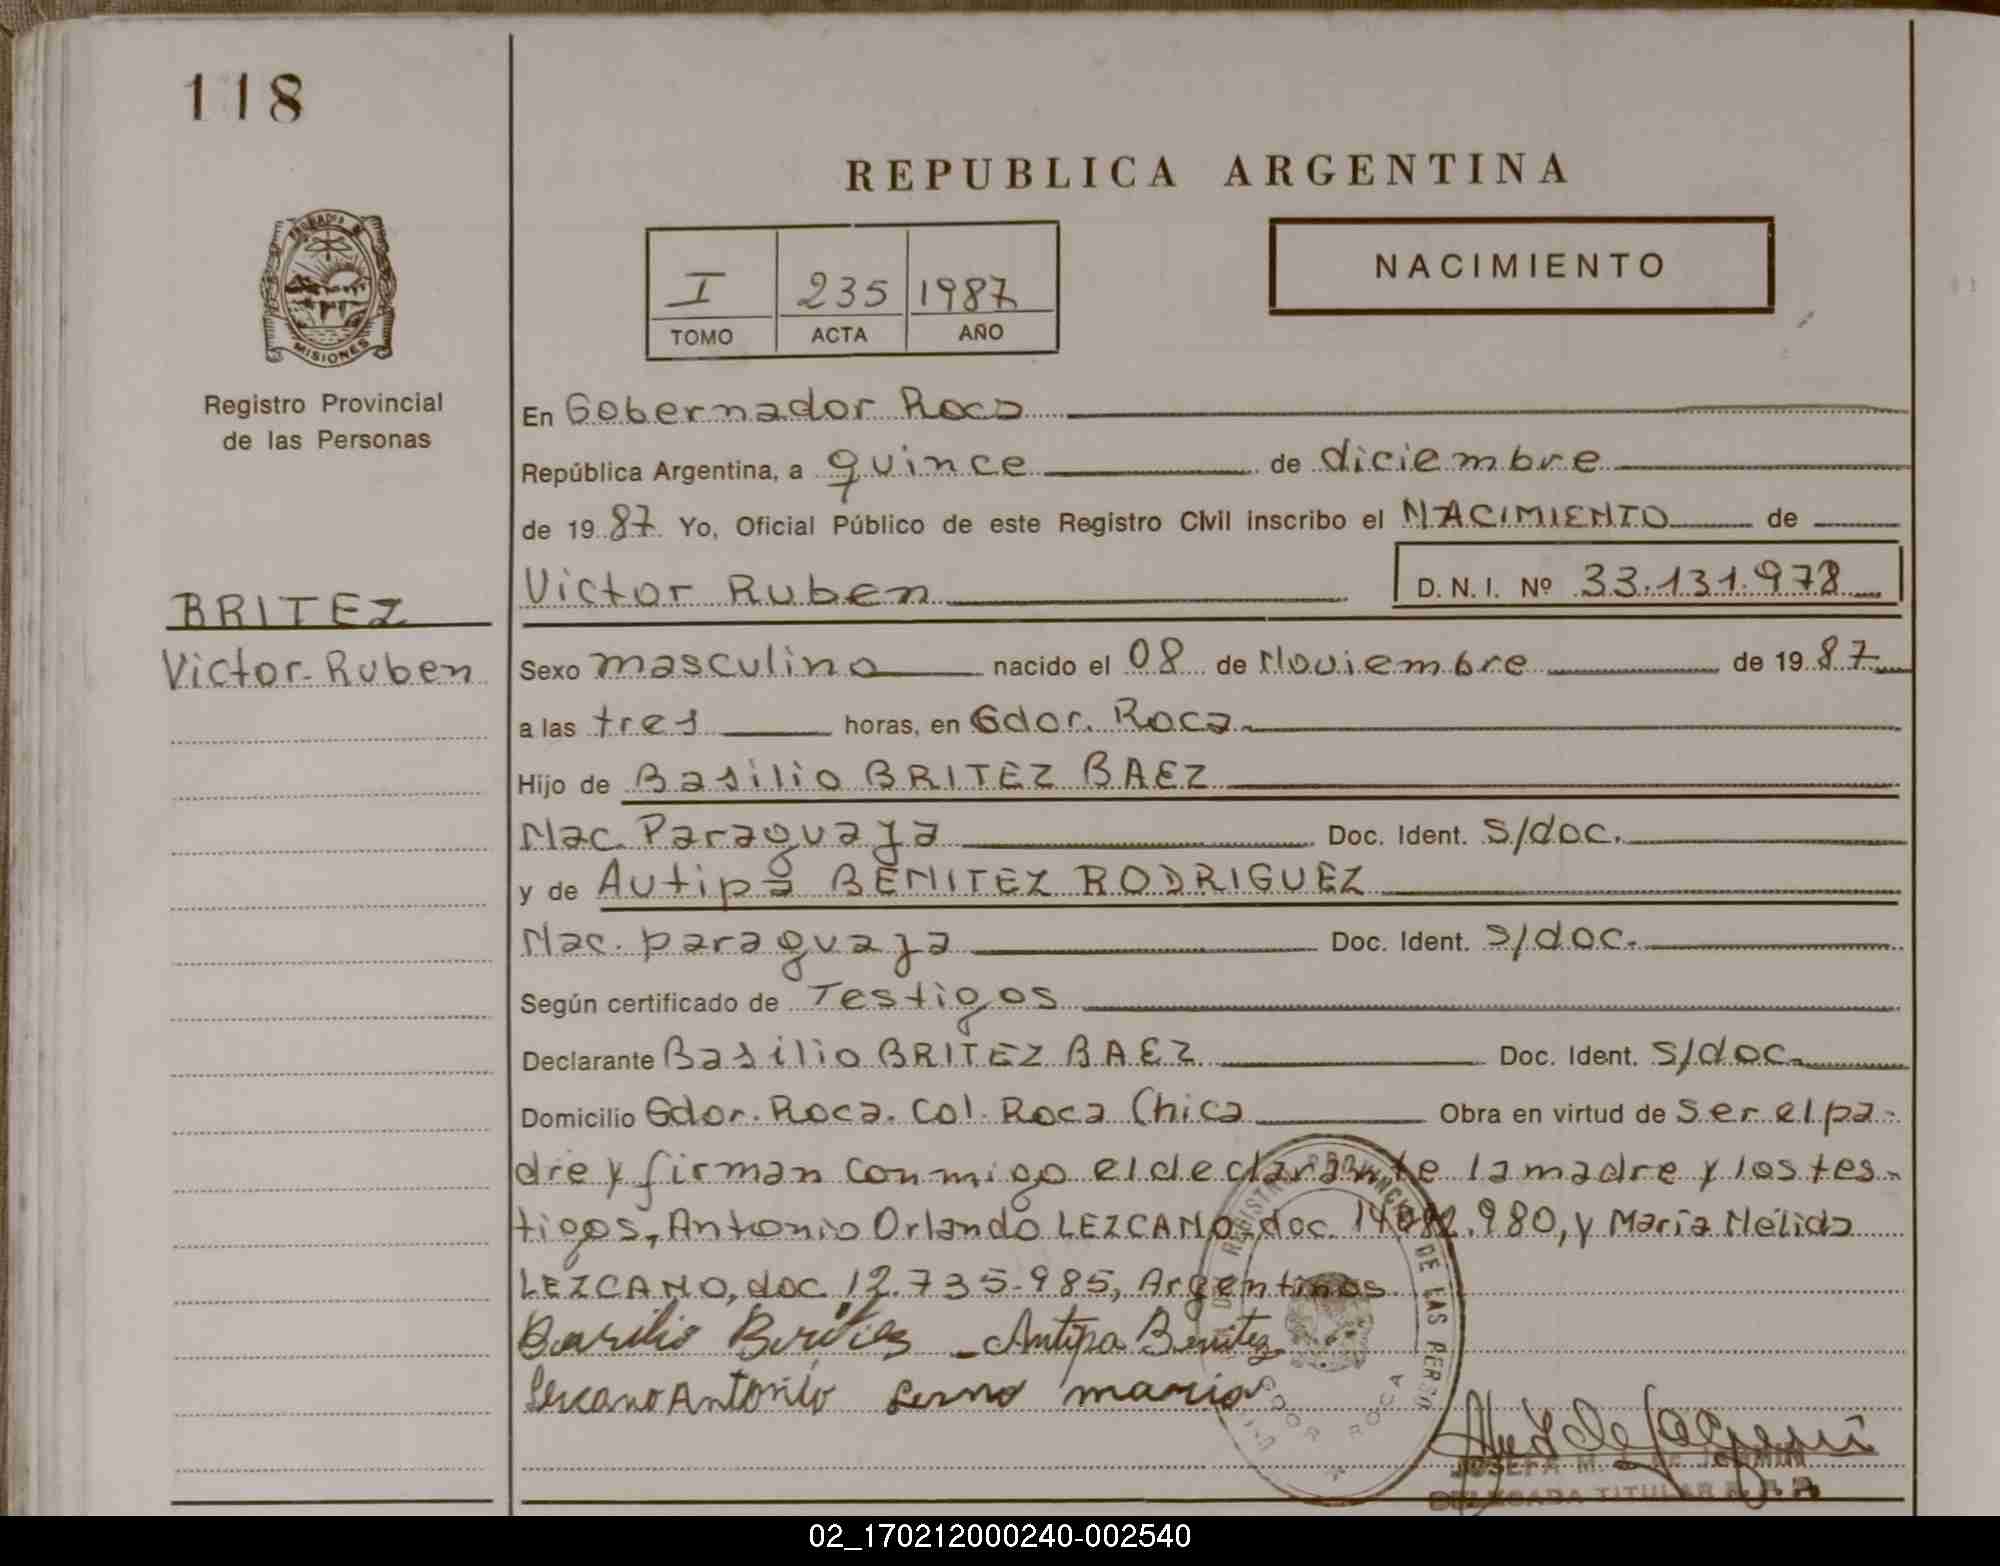 118
REPUBLICA ARGENTINA
I 235 1987
TOMO ACTA AÑO
NACIMIENTO
MISIONES
Registro Provincial
de las Personas
En Gobernador Roca
República Argentina, a quince de diciembre
de 19 87 Yo, Oficial Público de este Registro Civil inscribo el NACIMIENTO de
Victor Ruben D. N. I. Nº 33.131.978
BRITEZ
Victor Ruben
Sexo masculino nacido el 08 de Noviembre de 19 87
a las tres horas, en Gdor. Roca
Hijo de Basilio BRITEZ BAEZ
Nac. Paraguaya Doc. Ident. S/doc.
y de Autipa BENITEZ RODRIGUEZ
Nac. paraguaya Doc. Ident. S/doc.
Según certificado de Testigos
Declarante Basilio BRITEZ BAEZ Doc. Ident. S/doc.
Domicilio Gdor. Roca. Col. Roca Chica Obra en virtud de ser el pa-
dre y firman conmigo el declarante la madre y los tes-
tigos, Antonio Orlando LEZCANO, doc. 980, y María Nélida
LEZCANO, doc. 12.735.985, Argentinos.
Basilio Antipa Benitez
Lezcano Antonio maria
REGISTRO PROVINCIAL DE LAS PERSO
GDOR ROCA
JOSEFA M.
DELEGADA TITULAR
02_170212000240-002540